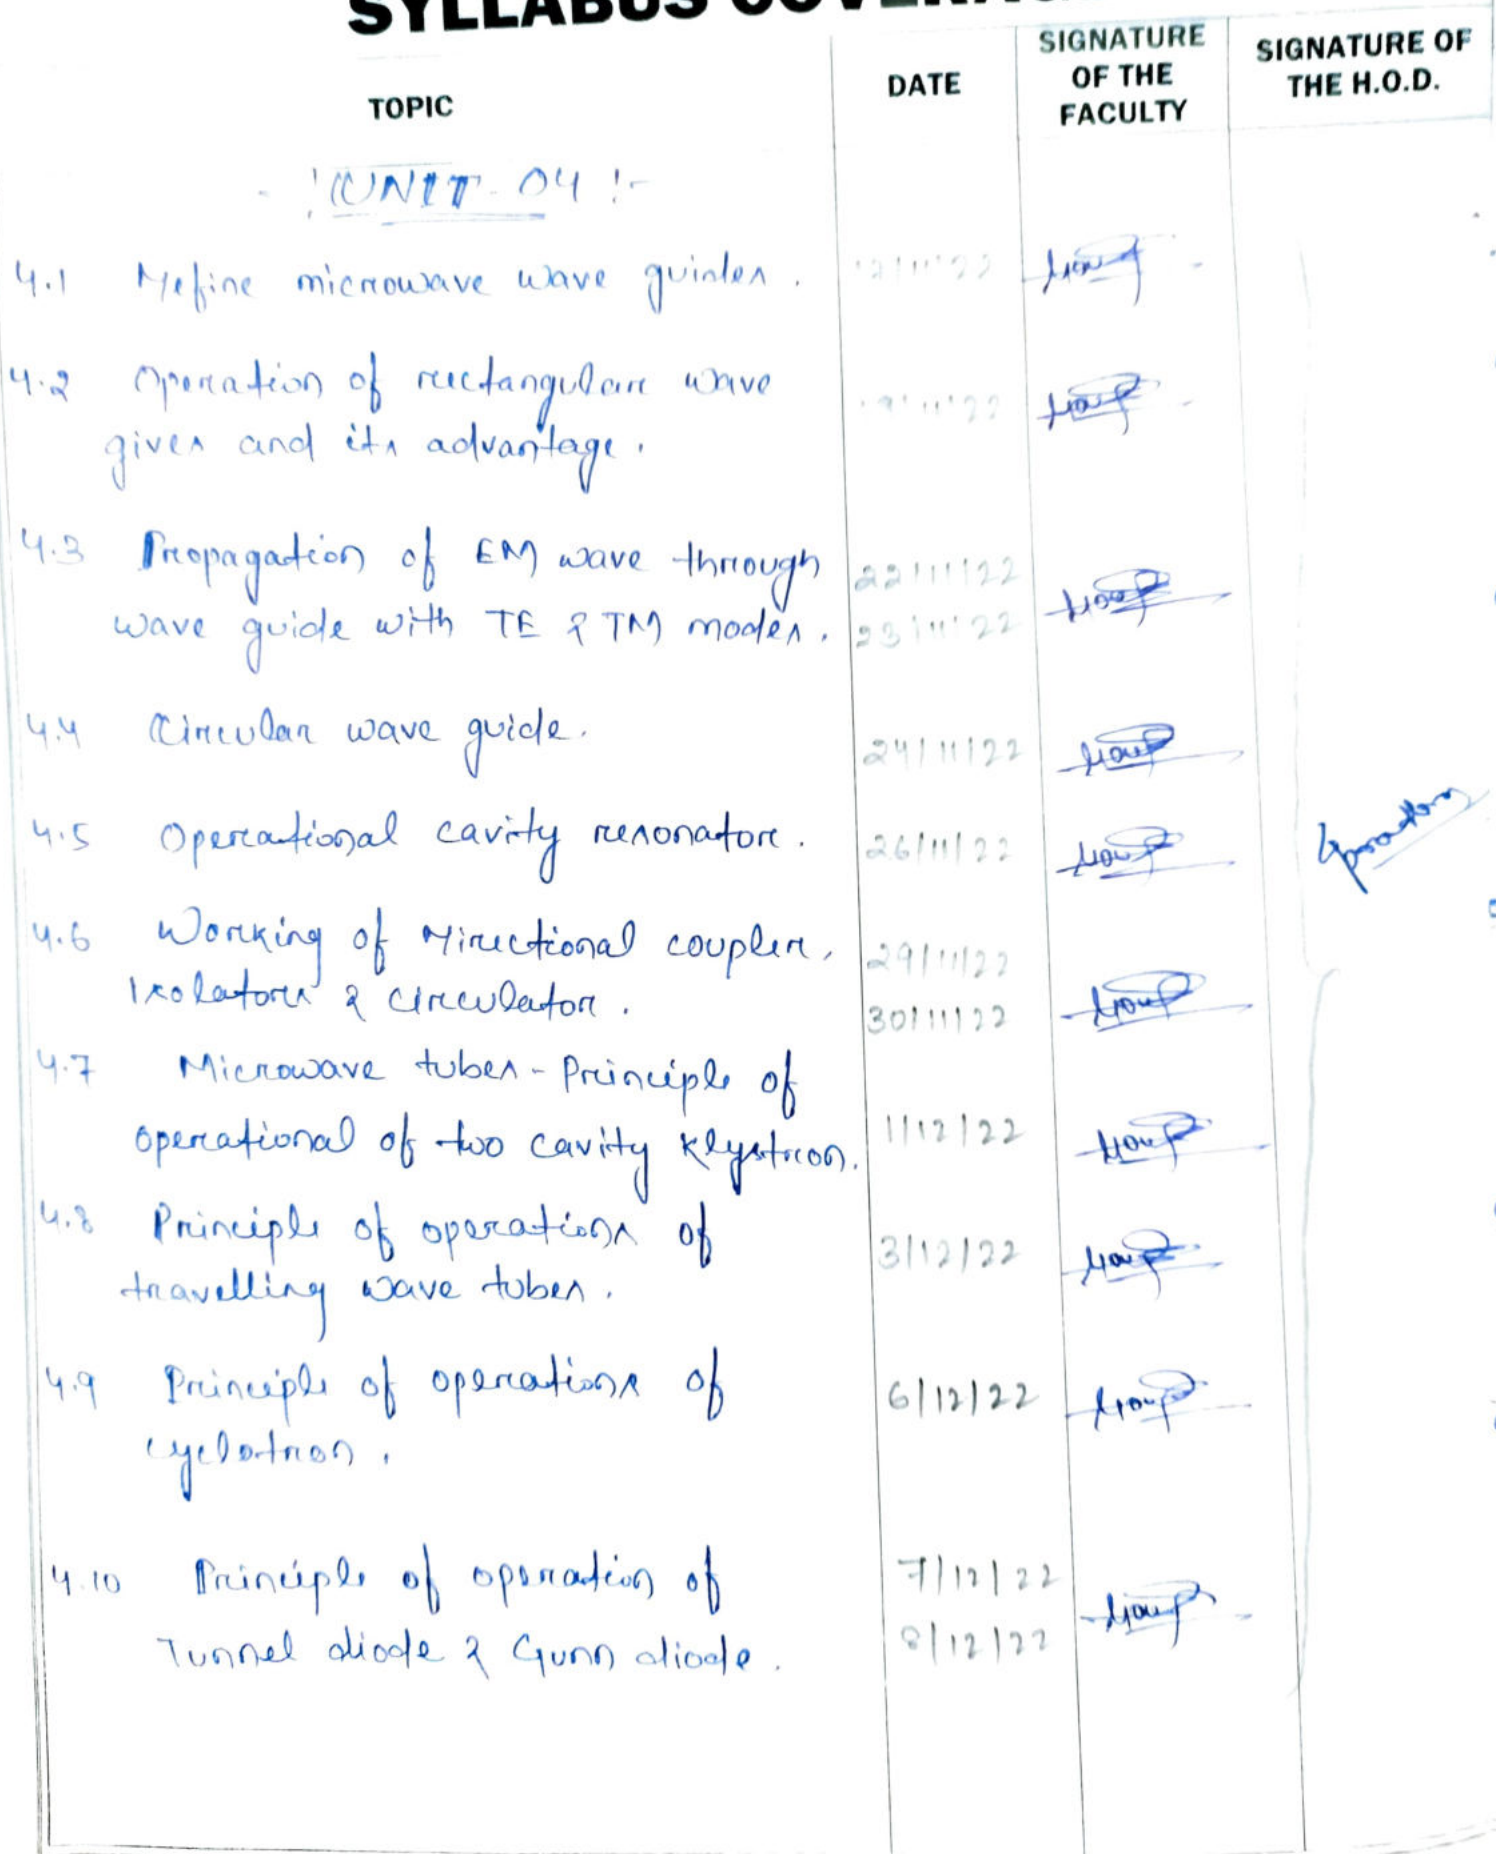 SYLLABUS COVERAG
TOPIC
DATE
SIGNATURE
OF THE
FACULTY
SIGNATURE OF
THE H.O.D.
-:UNIT-04:-
4.1 Define microwave wave guides.
12/11/22
4.2 Operation of rectangular wave
gives and its advantage.
19/11/22
4.3 Propagation of EM wave through
22/11/22
wave guide with TE & TM modes.
23/11/22
4.4 Circular wave guide.
24/11/22
4.5 Operational cavity resonator.
26/11/22
4.6 Working of Directional coupler,
29/11/22
Isolator & circulator.
30/11/22
4.7 Microwave tubes - Principle of
operational of two cavity Klystron.
1/12/22
4.8 Principle of operations of
travelling wave tubes.
3/12/22
4.9 Principle of operations of
cyclotron.
6/12/22
4.10 Principle of operation of
7/12/22
Tunnel diode & Gunn diode.
8/12/22